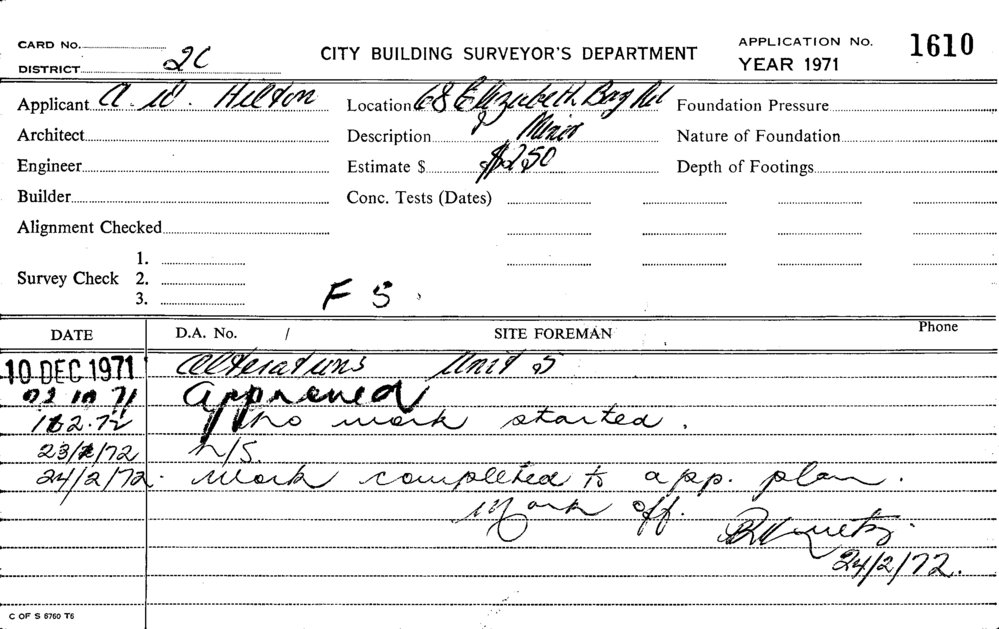 CARD No.
DISTRICT 2C
CITY BUILDING SURVEYOR'S DEPARTMENT
APPLICATION No. 1610
YEAR 1971
Applicant A. W. Hilton Location 68 Elizabeth Bay Rd Foundation Pressure
Architect Description Minor Nature of Foundation
Engineer Estimate $ $250 Depth of Footings
Builder Conc. Tests (Dates)
Alignment Checked
Survey Check 1.
2.
3.
F 5.
DATE D.A. No. / SITE FOREMAN Phone
10 DEC 1971 Alterations Unit 5
Approved
no work started.
23/2/72 N/S.
24/2/72. work completed to app. plan.
Mark off.
24/2/72.
C OF S 6760 T6